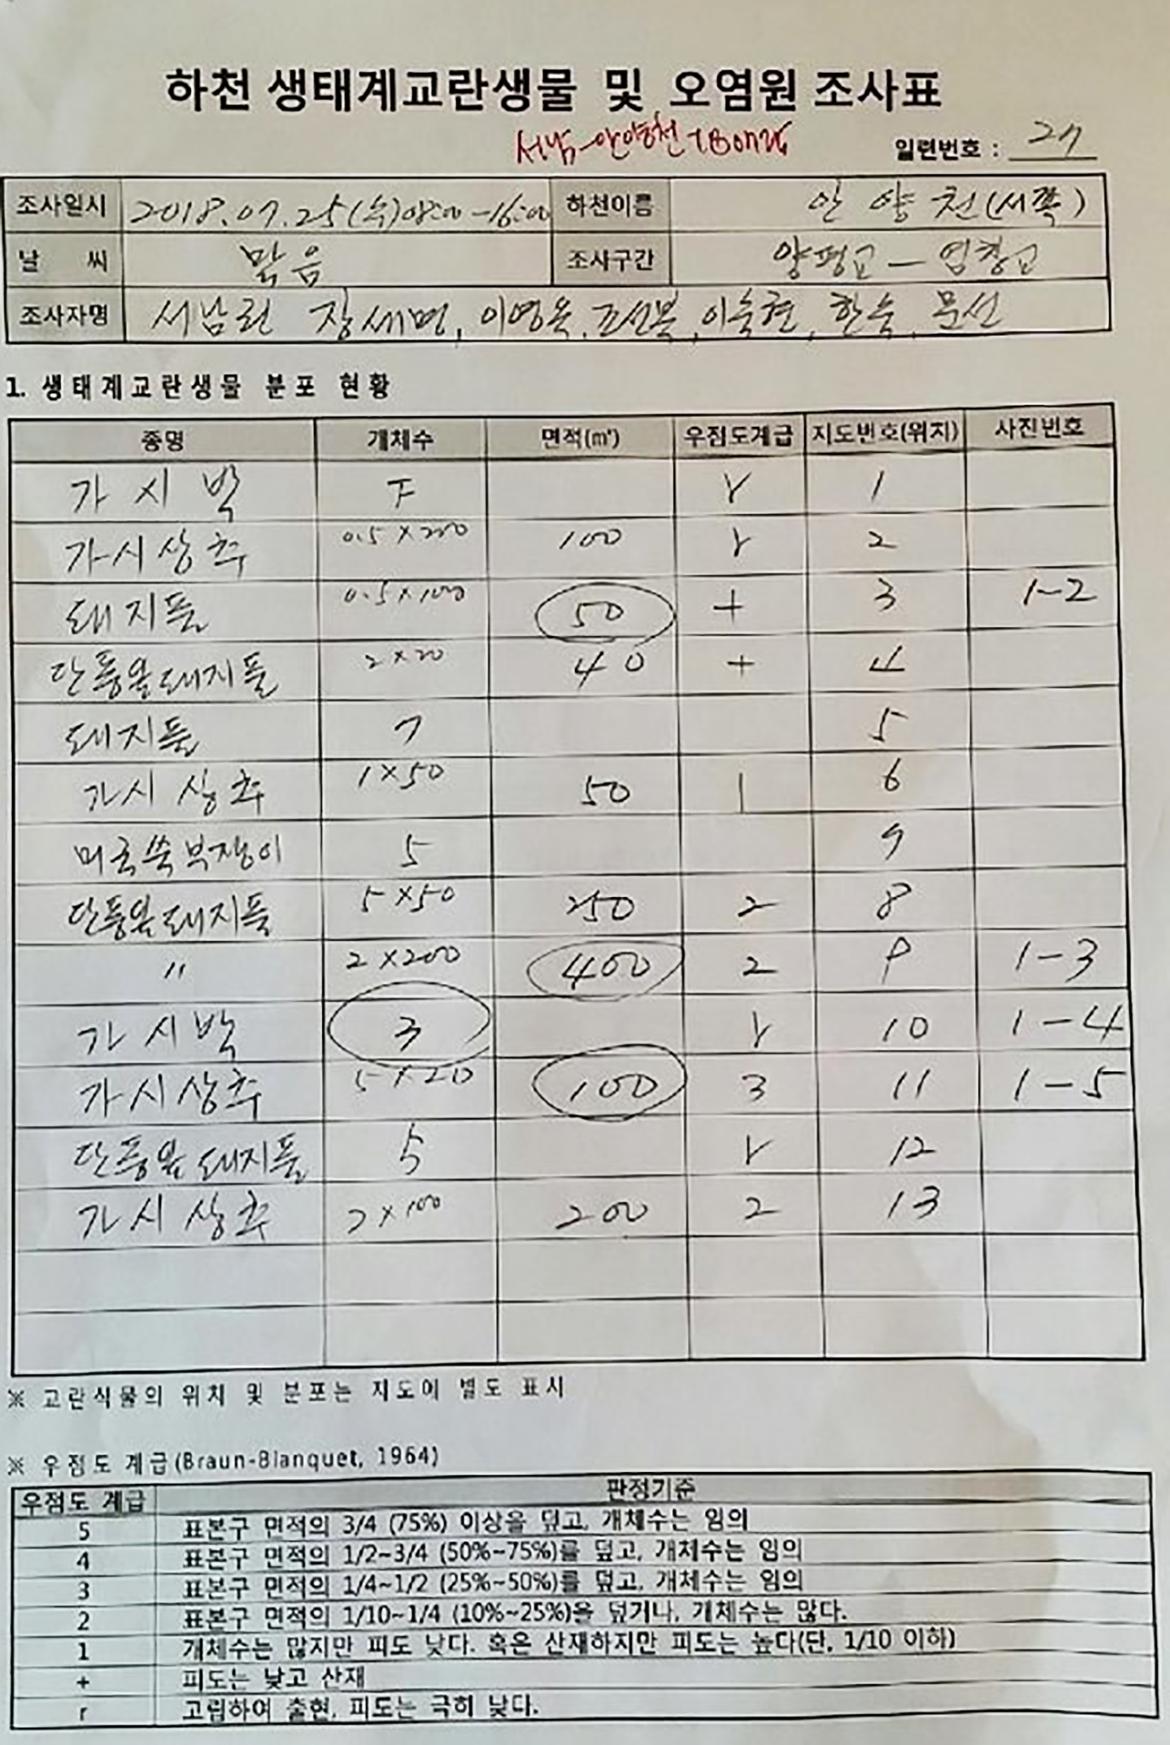 하천 생태계교란생물 및 오염원 조사표
서남-안양천
일련번호 : 27
조사일시 2018.07.25(수)08:00-16:00 하천이름 안양천(서쪽)
날 씨 맑음 조사구간 양평교-염창교
조사자명 서남권 장세명, 이영옥, 조선봉, 이숙현, 한숙, 문선
1. 생태계교란생물 분포 현황
종명 개체수 면적(㎡) 우점도계급 지도번호(위치) 사진번호
가시박 r 1
가시상추 0.5×200 100 r 2
돼지풀 0.5×100 50 + 3 1-2
단풍잎돼지풀 2×20 40 + 4
돼지풀 7 5
가시상추 1×50 50 1 6
미국쑥부쟁이 5
단풍잎돼지풀 5×50 250 2 8
〃 2×200 400 2 9 1-3
가시박 3 r 10 1-4
가시상추 5×20 100 3 11 1-5
단풍잎돼지풀 5 r 12
가시상추 2×100 200 2 13
※ 교란식물의 위치 및 분포는 지도에 별도 표시
※ 우점도 계급(Braun-Blanquet, 1964)
우점도 계급 판정기준
5 표본구 면적의 3/4 (75%) 이상을 덮고, 개체수는 임의
4 표본구 면적의 1/2~3/4 (50%~75%)를 덮고, 개체수는 임의
3 표본구 면적의 1/4~1/2 (25%~50%)를 덮고, 개체수는 임의
2 표본구 면적의 1/10~1/4 (10%~25%)을 덮거나, 개체수는 많다.
1 개체수는 많지만 피도 낮다. 혹은 산재하지만 피도는 높다(단, 1/10 이하)
+ 피도는 낮고 산재
r 고립하여 출현, 피도는 극히 낮다.